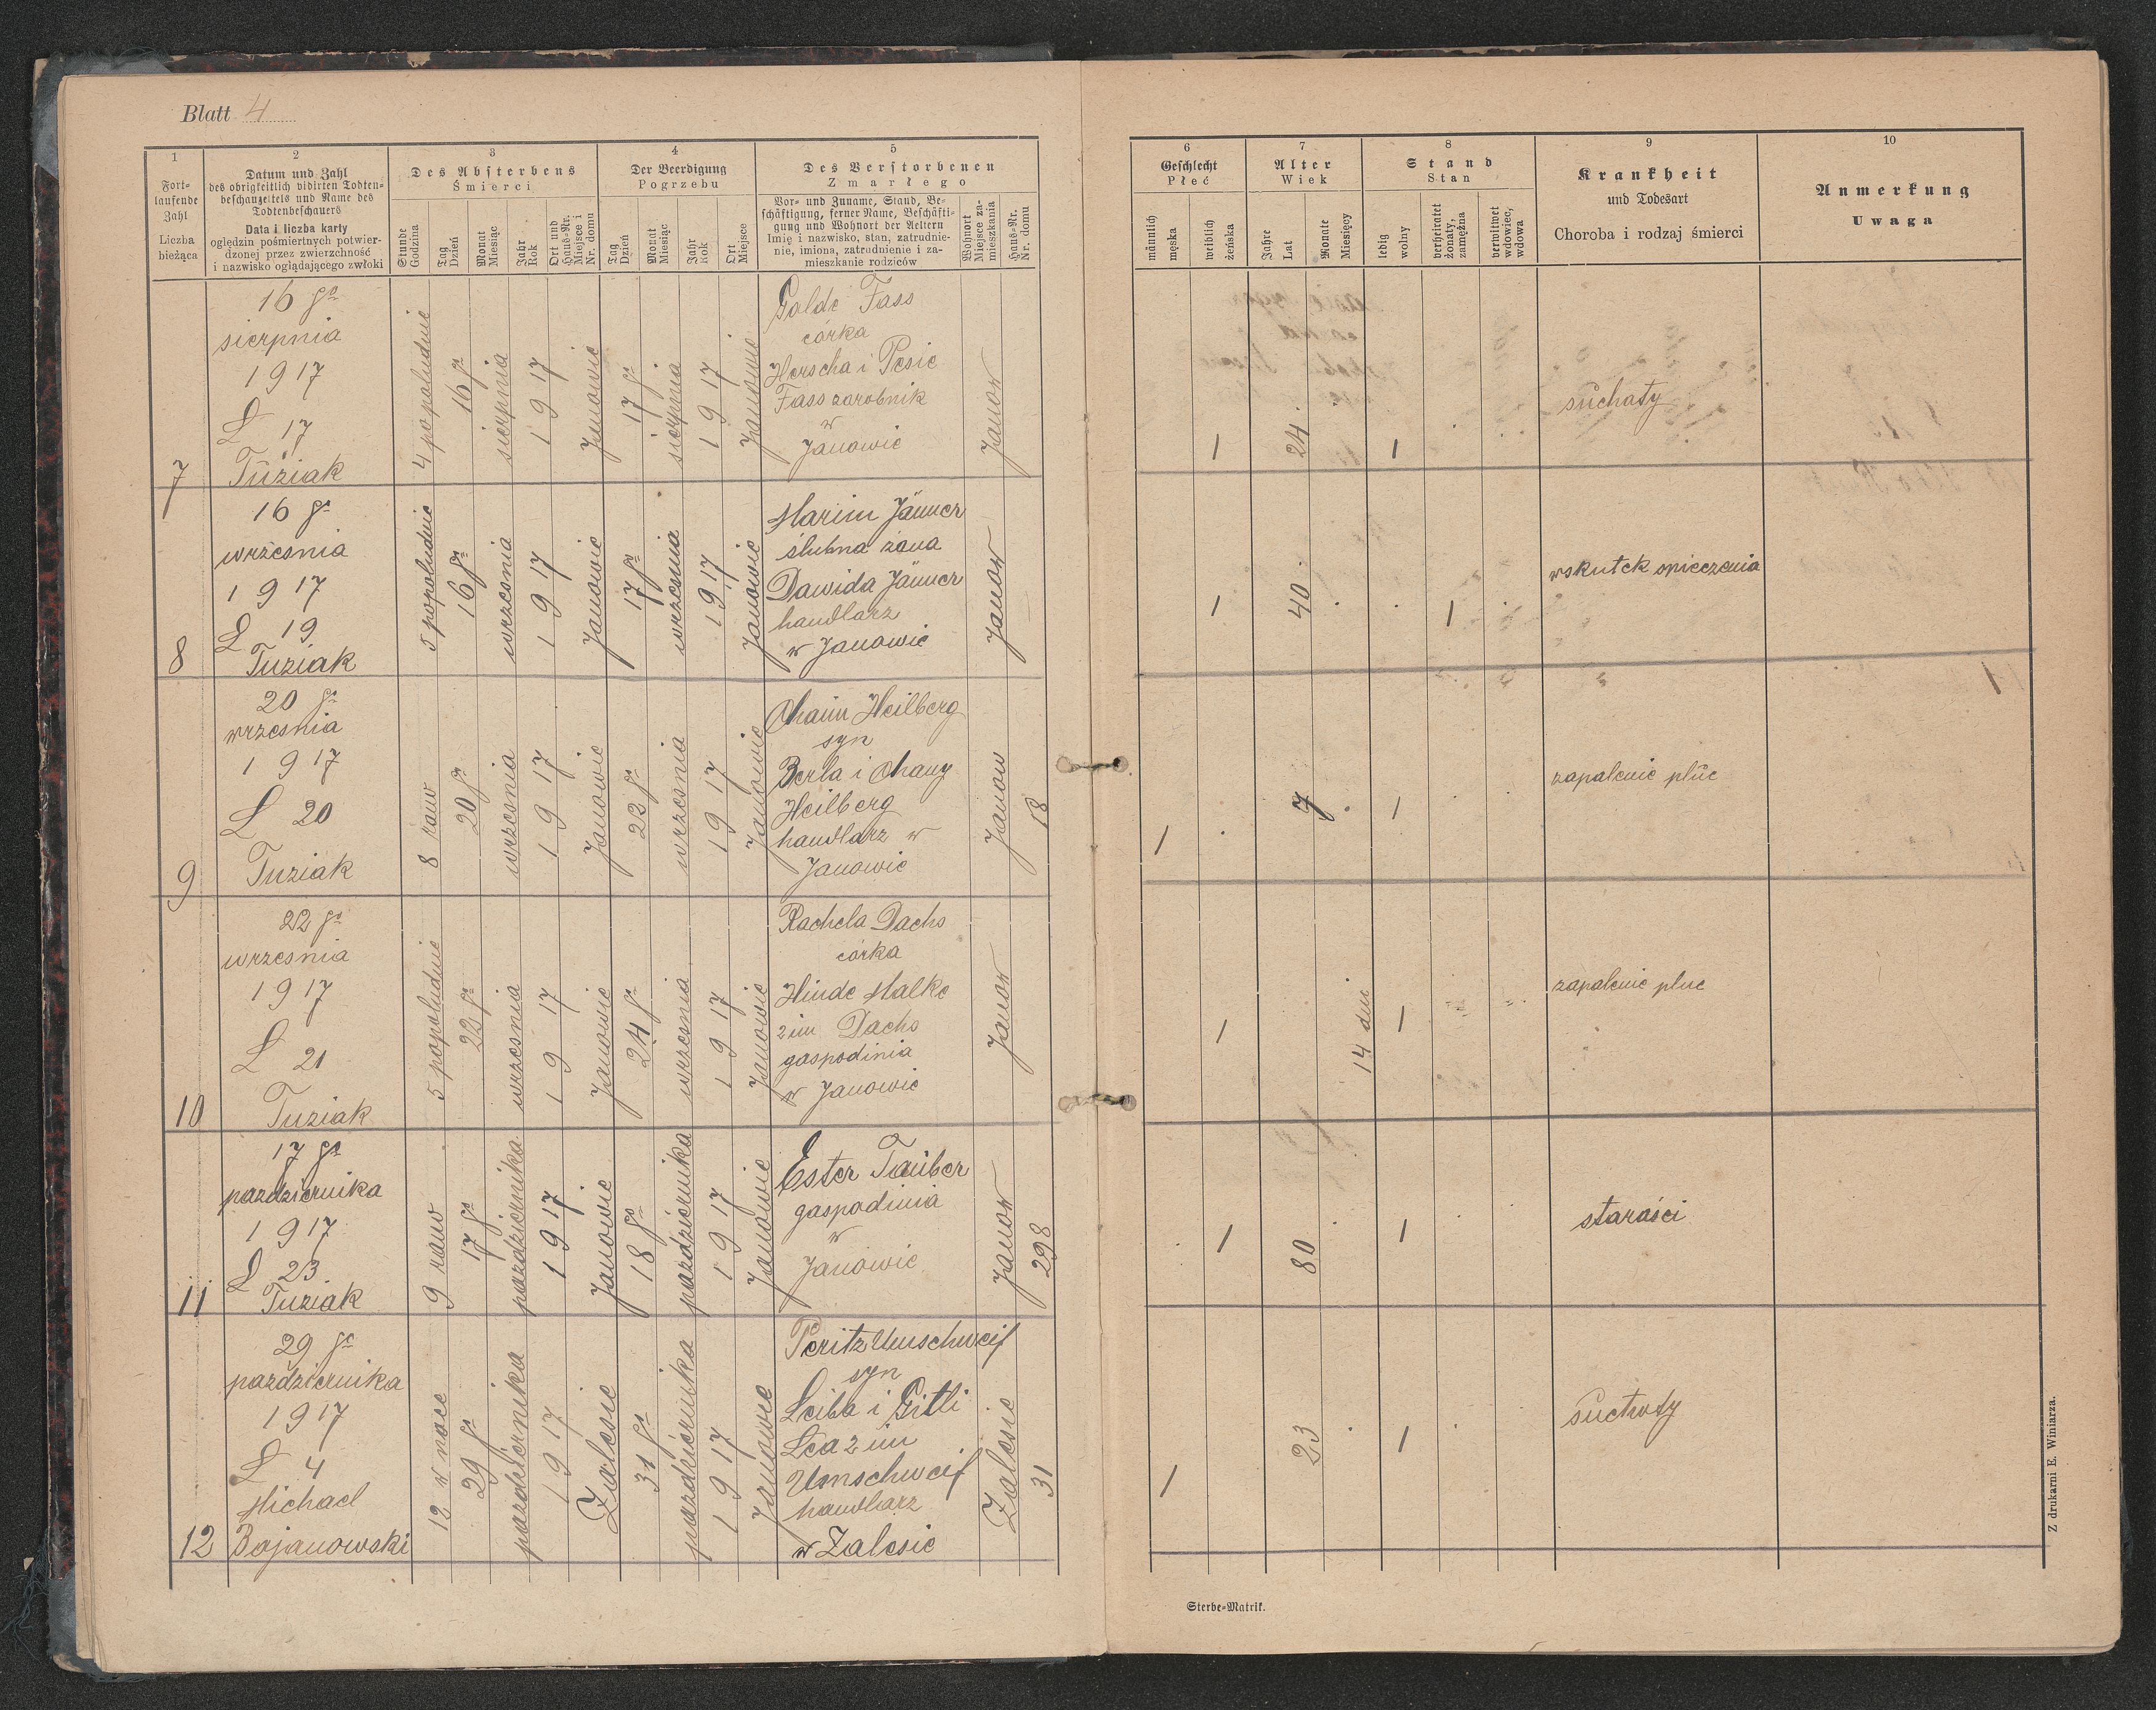 Blatt 4
1
Fort-
laufende
Zahl
Liczba
bieżąca
2
Datum und Zahl
des obrigkeitlich vidirten Todten-
beschauzettels und Name des
Todtenbeschauers
Data i liczba karty
oględzin pośmiertnych potwier-
dzonej przez zwierzchność
i nazwisko oglądającego zwłoki
3
Des Absterbens
Śmierci
Stunde
Godzina
Tag
Dzień
Monat
Miesiąc
Jahr
Rok
Ort und
Haus-Nr.
Miejsce i
Nr. domu
4
Der Beerdigung
Pogrzebu
Tag
Dzień
Monat
Miesiąc
Jahr
Rok
Ort
Miejsce
5
Des Verstorbenen
Zmarłego
Vor- und Zuname, Stand, Be-
schäftigung, ferner Name, Beschäfti-
gung und Wohnort der Aeltern
Imię i nazwisko, stan, zatrudnie-
nie, imiona, zatrudnienie i za-
mieszkanie rodziców
Wohnort
Miejsce za-
mieszkania
Haus-Nr.
Nr. domu
6
Geschlecht
Płeć
männlich
męska
weiblich
żeńska
7
Alter
Wiek
Jahre
Lat
Monate
Miesięcy
8
Stand
Stan
ledig
wolny
verheiratet
żonaty,
zamężna
verwitwet
wdowiec,
wdowa
9
Krankheit
und Todesart
Choroba i rodzaj śmierci
10
Anmerkung
Uwaga
7
16 go
sierpnia
1917
L 17
Tuziak
4 popoludnie
16 go
sierpnia
1917
Janowie
17 go
sierpnia
1917
Janowie
Golde Fass
córka
Herscha i Pesie
Fass zarobnik
w
Janowie
Janow
1
24
1
suchaty
8
16 go
wrzesnia
1917
L 19
Tuziak
5 popoludnie
16 go
wrzesnia
1917
Janowie
17 go
wrzesnia
1917
Janowie
Marim Jänner
ślubna żona
Dawida Jänner
handlarz
w Janowie
Janow
1
40
1
wskutek spieczenia
9
20 go
wrzesnia
1917
L 20
Tuziak
8 rano
20 go
wrzesnia
1917
Janowie
22 go
wrzesnia
1917
Janowie
Chaim Heilberg
syn
Berla i Chany
Heilberg
handlarz w
Janowie
Janow
18
1
7
1
zapalenie płuc
10
22 go
wrzesnia
1917
L 21
Tuziak
5 popoludnie
22 go
wrzesnia
1917
Janowie
24 go
wrzesnia
1917
Janowie
Rachela Dachs
córka
Hinde Malke
2 im Dachs
gaspodinia
w Janowie
Janow
1
14 dni
1
zapalenie pluc
11
17 go
pazdziernika
1917
L 23
Tuziak
9 rano
17 go
pazdziernika
1917
Janowie
18 go
pazdziernika
1917
Janowie
Ester Tauber
gaspodinia
w
Janowie
Janow
298
1
80
1
starości
12
29 go
pazdziernika
1917
L 4
Michael
Bojanowski
12 w noce
29 go
pazdziernika
1917
Zalesie
31 go
pazdziernika
1917
Janowie
Peritz Umschweif
syn
Leiba i Gitli
Lea 2 im
Umschweif
handlarz
w Zalesie
Zalesie
31
1
23
1
suchoty
Sterbe-Matrik.
Z drukarni E. Winiarza.